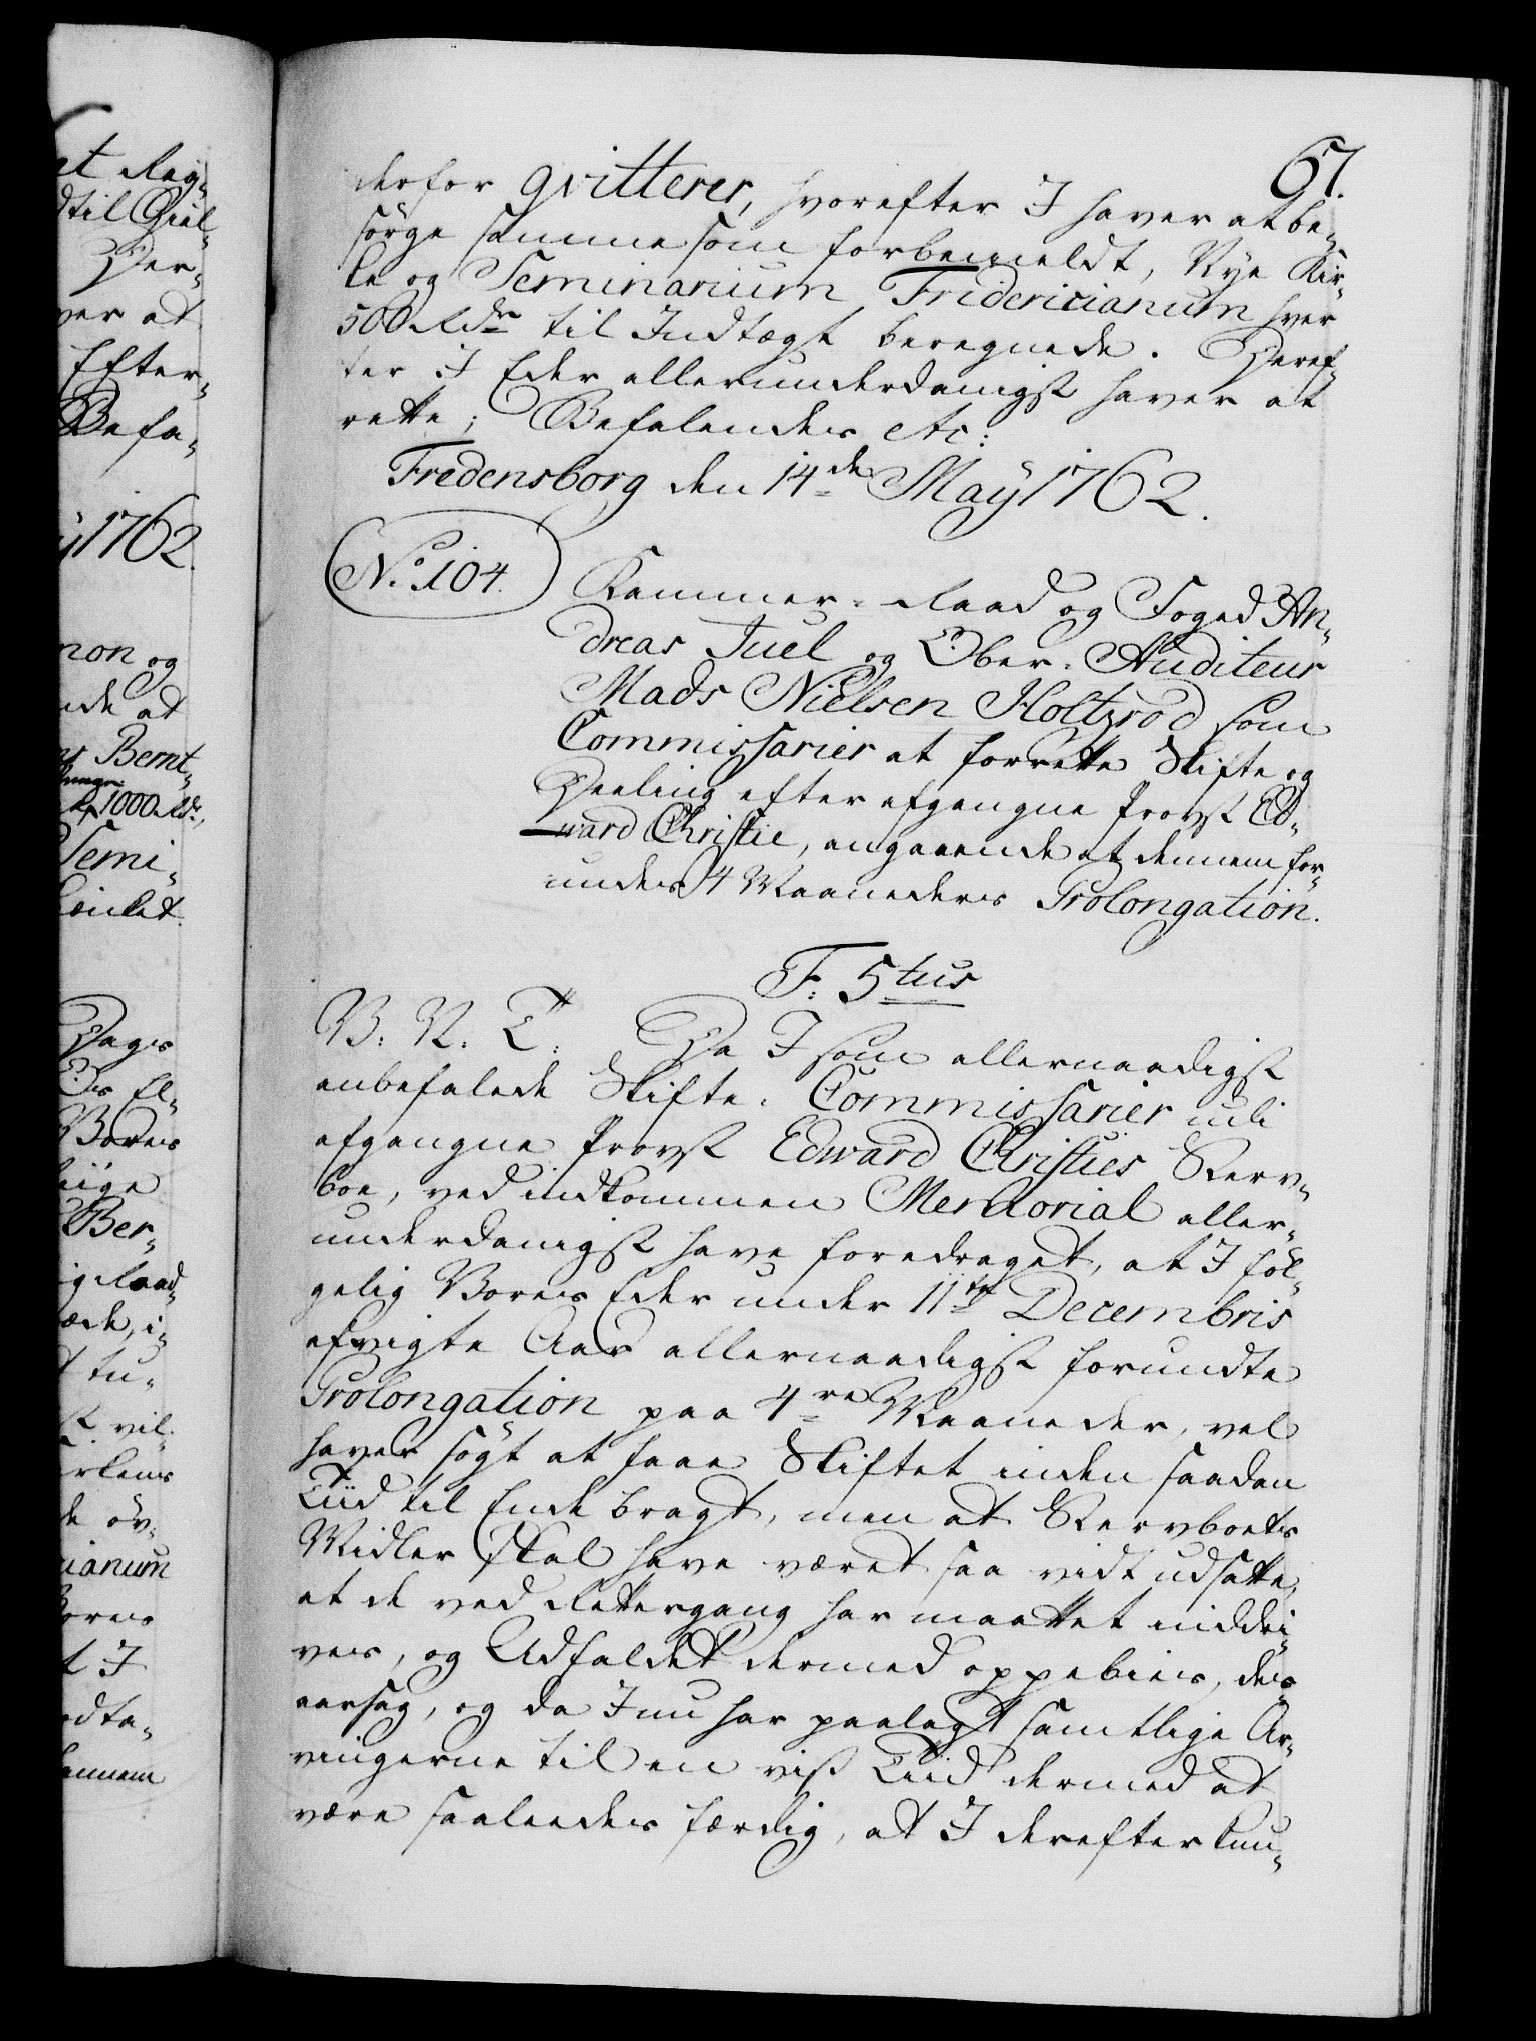 67.
derfor qvitterer, hvorefter I haver at be-
sörge samme som forbemeldt, Nye Kir-
ke og Seminarium Fridericianum hver
500 Rdr til Indtægt beregnede. Deref-
ter I Eder allerunderdanigst haver at
rette; Befalendes etc:
Fredensborg den 14de May 1762.
No. 104.
Kammer-Raad og Foged An-
dreas Juel og Ober-Auditeur
Mads Nielsen Holtzrod som
Commissarier at forrette Skifte og
Deeling efter afgangne Provst Ed-
ward Christie, angaaende at dennem for-
undes 4 Maaneders Prolongation.
F: 5tus
V: N: T: Da I som allernaadigst
anbefalede Skifte-Commissarier udi
afgangne Provst Edward Christies Sterv-
boe, ved indkommen Memorial aller-
underdanigst have foredraget, at I föl-
gelig Vores Eder under 11te Decembris
afvigte Aar allernaadigst forundte
Prolongation paa 4re Maaneder, vel
haver sögt at faae Skiftet inden saadan
Tiid til Ende bragt, men at Stervboets
Midler skal have været saa vidt udsatte,
at de ved Rettergang har maattet inddri-
ves, og Udfaldet dermed oppebies, des-
aarsag, og da I nu har paalagt samtlige Ar-
vingerne til en viss Tiid dermed at
være saaledes færdig, at I derefter kun-
et Reg-
dtil Gul-
Der-
ver at
Efter-
Befa-
ÿ 1762.
mon og
nde at
Bernt-
1000 Rdr,
Semi-
Dags
El-
Vores
Ber-
Raad-
i-
tu-
vil-
öv-
cianum
Vores
t I
dta-